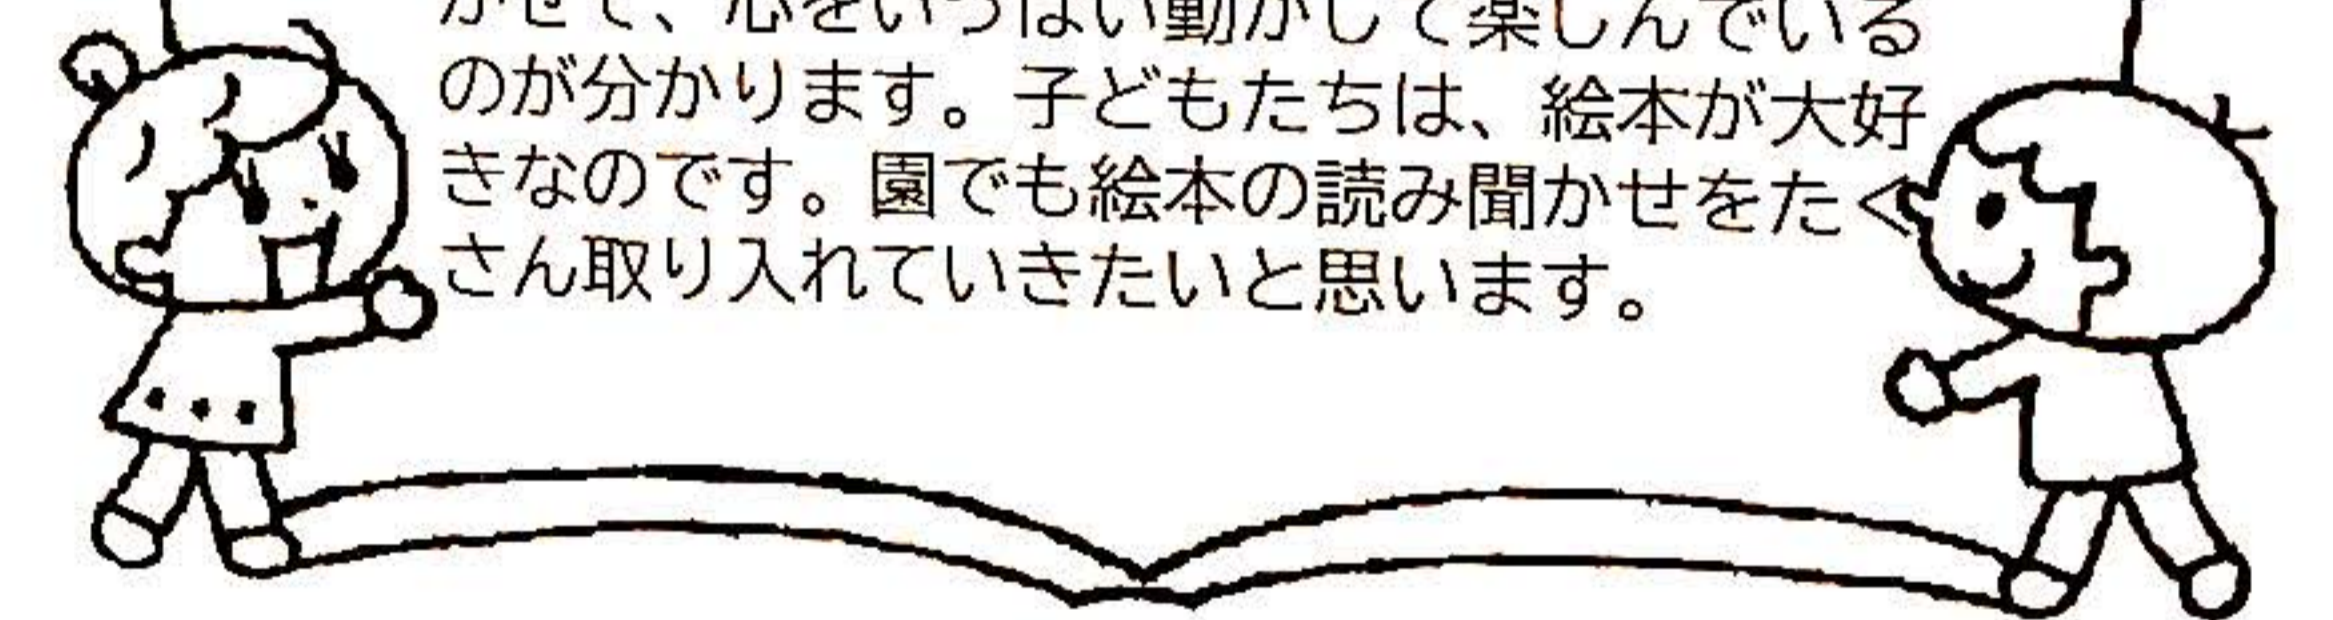 かせて、心をいっぱい動かして楽しんでいる
のが分かります。子どもたちは、絵本が大好
きなのです。園でも絵本の読み聞かせをたく
さん取り入れていきたいと思います。